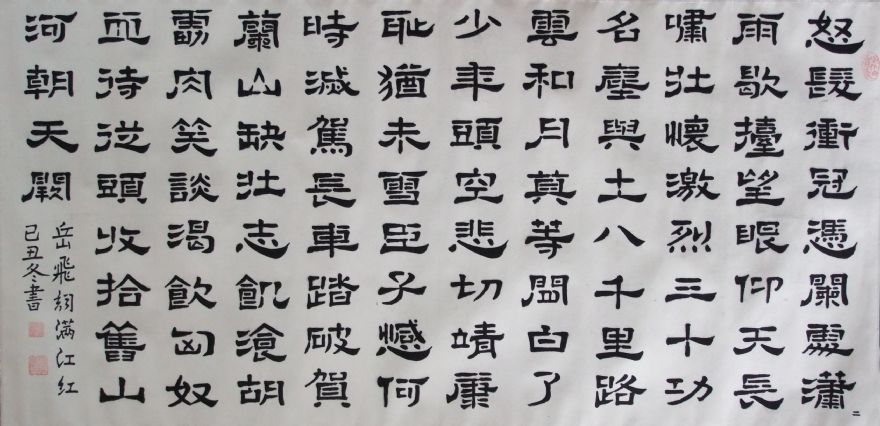 怒髮衝冠憑闌處瀟二
雨歇擡望眼仰天長
嘯壯懷激烈三十功
名塵與土八千里路
雲和月莫等閒白了
少年頭空悲切靖康
恥猶未雪臣子憾何
時滅駕長車踏破賀
蘭山缺壯志飢湌胡
虜肉笑談渴飲匈奴
血待從頭收拾舊山
河朝天闕
岳飛詞满江红
己丑冬書